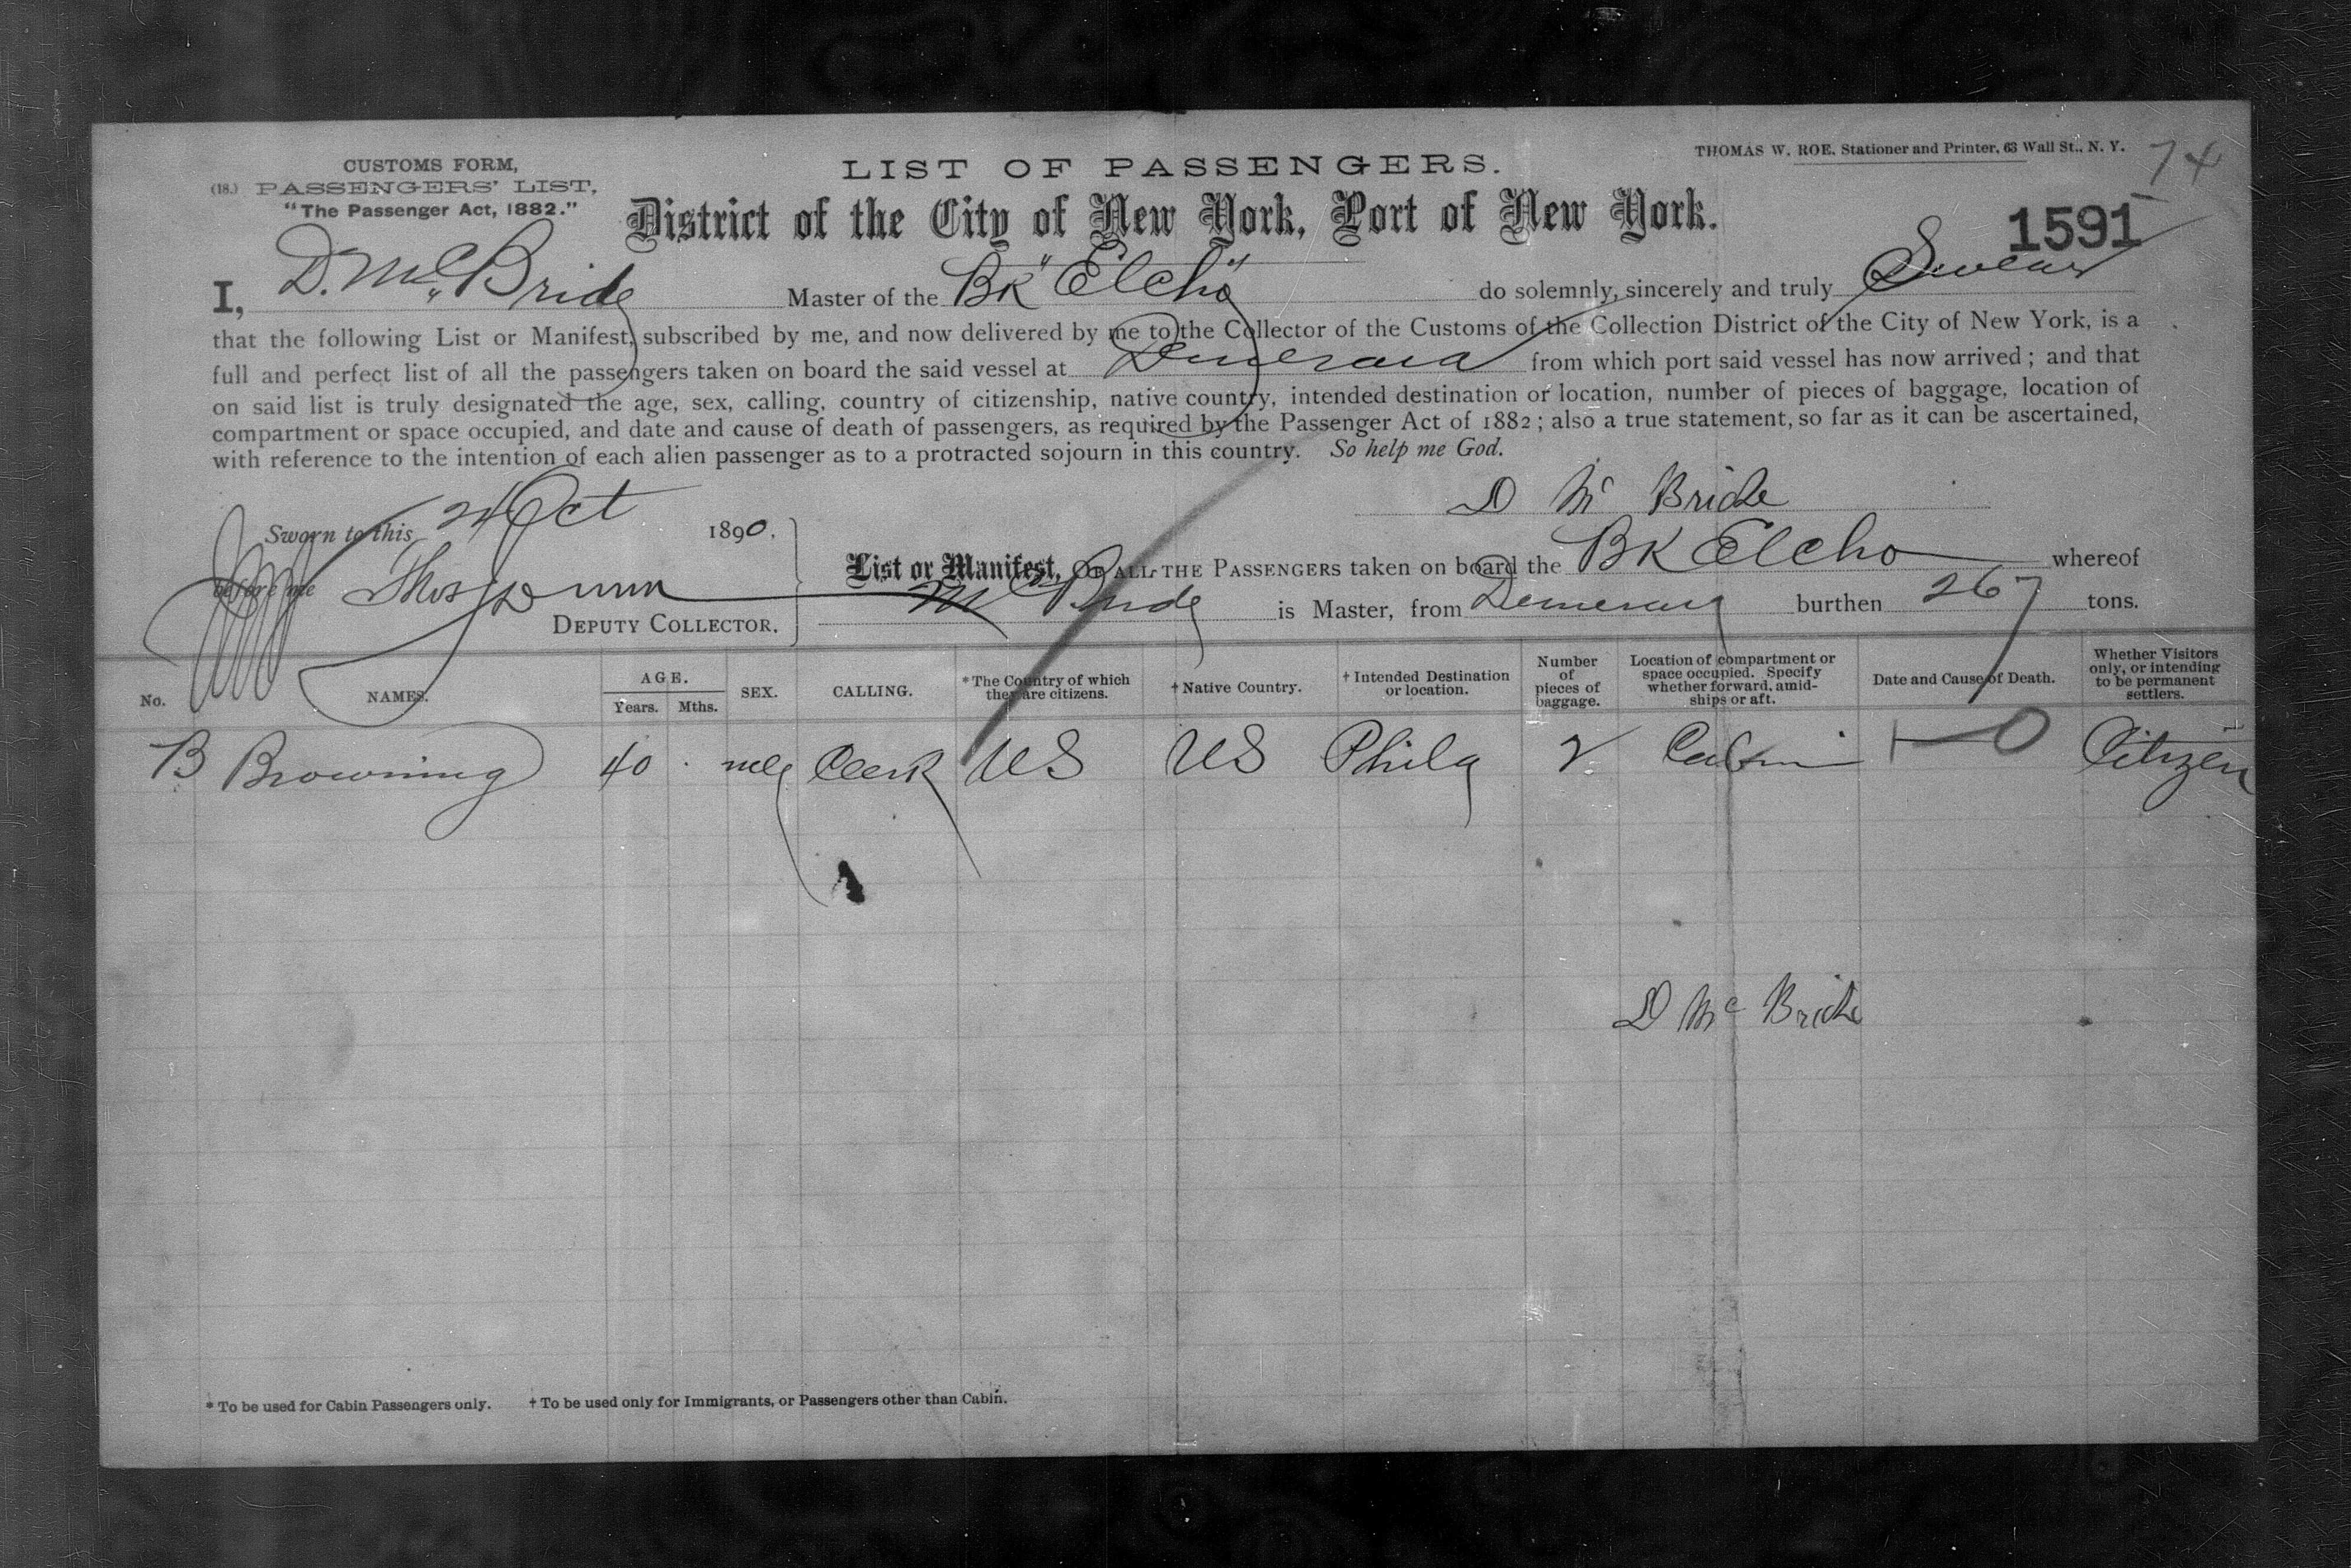 CUSTOMS FORM,
(18.) PASSENGERS' LIST,
"The Passenger Act, 1882."
LIST OF PASSENGERS.
THOMAS W. ROE, Stationer and Printer, 63 Wall St., N. Y.
74
District of the City of New York, Port of New York.
1591
I, D. McBride Master of the BK "Elcho" do solemnly, sincerely and truly Swear
that the following List or Manifest, subscribed by me, and now delivered by me to the Collector of the Customs of the Collection District of the City of New York, is a
full and perfect list of all the passengers taken on board the said vessel at Demerara from which port said vessel has now arrived; and that
on said list is truly designated the age, sex, calling, country of citizenship, native country, intended destination or location, number of pieces of baggage, location of
compartment or space occupied, and date and cause of death of passengers, as required by the Passenger Act of 1882; also a true statement, so far as it can be ascertained,
with reference to the intention of each alien passenger as to a protracted sojourn in this country. So help me God.
D Mc Bride
Sworn to this 24 Oct 1890.
before me Thos Dunn
DEPUTY COLLECTOR.
List or Manifest, OF ALL THE PASSENGERS taken on board the BK Elcho whereof
McBride is Master, from Demerara burthen 267 tons.
No. NAMES. AGE. Years. Mths. SEX. CALLING. * The Country of which they are citizens. † Native Country. † Intended Destination or location. Number of pieces of baggage. Location of compartment or space occupied. Specify whether forward, amidships or aft. Date and Cause of Death. Whether Visitors only, or intending to be permanent settlers.
B Browning 40 Clerk US US Phila 2 Cabin 1—0 Citizen
D Mc Bride
* To be used for Cabin Passengers only. † To be used only for Immigrants, or Passengers other than Cabin.